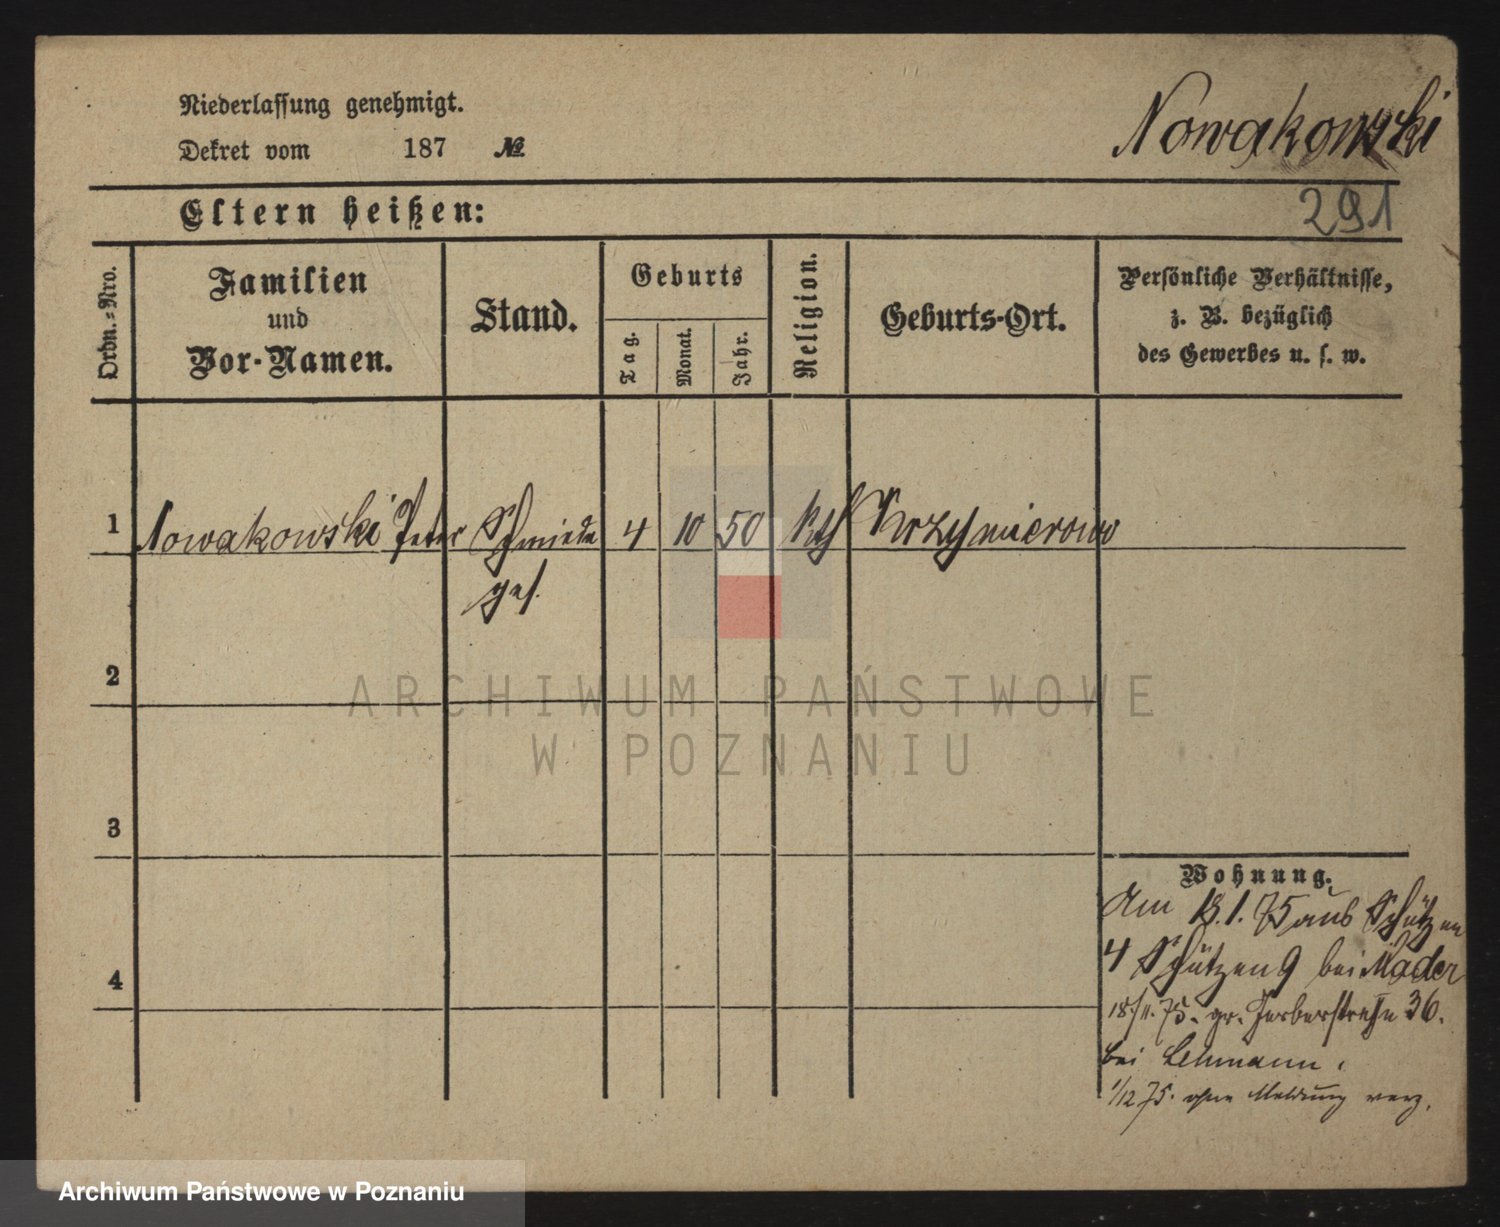 Niederlassung genehmigt.
Nowakowski
Dekret vom 187 №
Eltern heißen:
291
Ordn.-Nro.
Familien
und
Vor-Namen.
Stand.
Geburts
Tag.
Monat.
Jahr.
Religion.
Geburts-Ort.
Persönliche Verhältnisse,
z. B. bezüglich
des Gewerbes u. s. w.
1 Nowakowski Peter Schmiede 4 10 50 kth Krzymierowo
ges.
2
ARCHIWUM PAŃSTWOWE
W POZNANIU
3
Wohnung.
Am 13.1.75 aus Schützen
4 Schützen 9 bei Mader
18/11.75. gr. Gerberstraße 36.
bei Lehmann.
1/12 75. ohne Meldung verz.
4
Archiwum Państwowe w Poznaniu